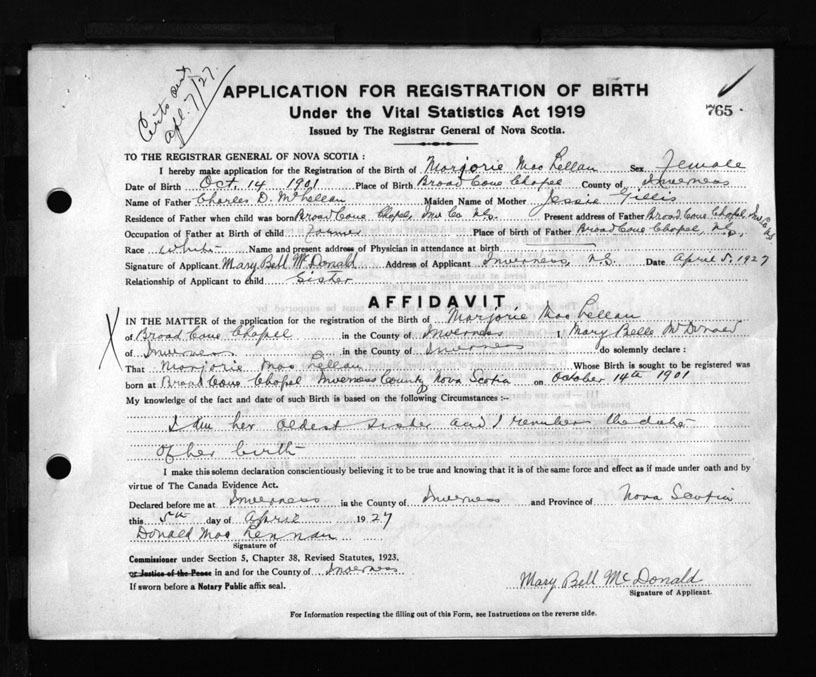 Certs out
Apl. 7/27.
APPLICATION FOR REGISTRATION OF BIRTH
Under the Vital Statistics Act 1919
765
Issued by The Registrar General of Nova Scotia.
TO THE REGISTRAR GENERAL OF NOVA SCOTIA :
I hereby make application for the Registration of the Birth of Marjorie Mac Lellan Sex Female
Date of Birth Oct. 14 1901 Place of Birth Broad Cove Chapel County of Inverness
Name of Father Charles D. McLellan Maiden Name of Mother Jessie Gillis
Residence of Father when child was born Broad Cove Chapel, Inv Co N.S. Present address of Father Broad Cove Chapel, Inv. Co. N.S.
Occupation of Father at Birth of child Farmer Place of birth of Father Broad Cove Chapel, N.S.,
Race White Name and present address of Physician in attendance at birth
Signature of Applicant Mary Bell McDonald Address of Applicant Inverness, N.S. Date April 5, 1927
Relationship of Applicant to child Sister
AFFIDAVIT
X
IN THE MATTER of the application for the registration of the Birth of Marjorie Mac Lellan
of Broad Cove Chapel in the County of Inverness I, Mary Belle McDonald
of Inverness in the County of Inverness do solemnly declare :
That Marjorie Mac Lellan Whose Birth is sought to be registered was
born at Broad Cove Chapel Inverness County Nova Scotia on October 14th 1901
My knowledge of the fact and date of such Birth is based on the following Circumstances :-
I am her oldest sister and I remember the date
of her birth
I make this solemn declaration conscientiously believing it to be true and knowing that it is of the same force and effect as if made under oath and by
virtue of The Canada Evidence Act.
Declared before me at Inverness in the County of Inverness and Province of Nova Scotia
this 5th day of April 1927
Donald Mac Lennan
Signature of
Commissioner under Section 5, Chapter 38, Revised Statutes, 1923,
or Justice of the Peace in and for the County of Inverness
If sworn before a Notary Public affix seal.
Mary Bell McDonald
Signature of Applicant.
For Information respecting the filling out of this Form, see Instructions on the reverse side.